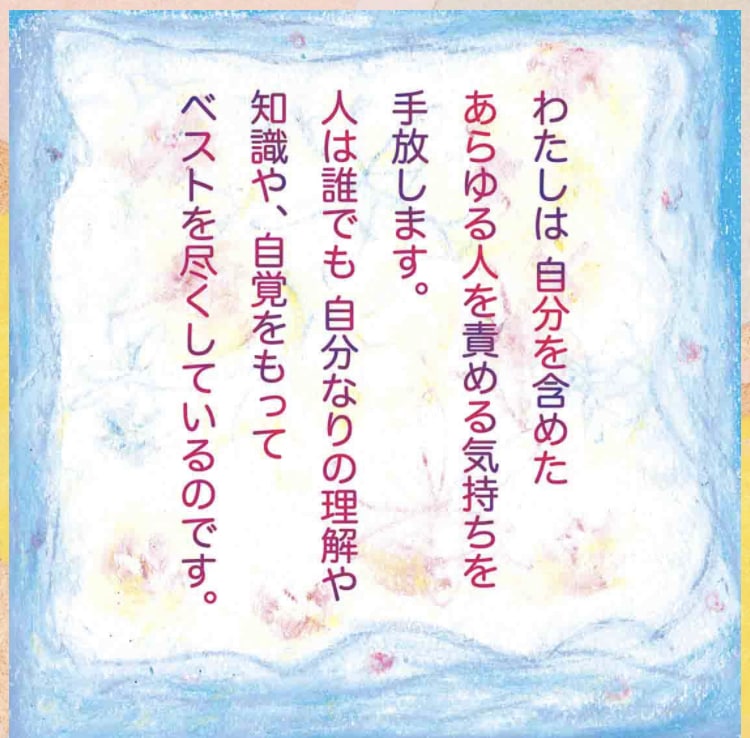 わたしは 自分を含めた
あらゆる人を責める気持ちを
手放します。
人は誰でも 自分なりの理解や
知識や、自覚をもって
ベストを尽くしているのです。